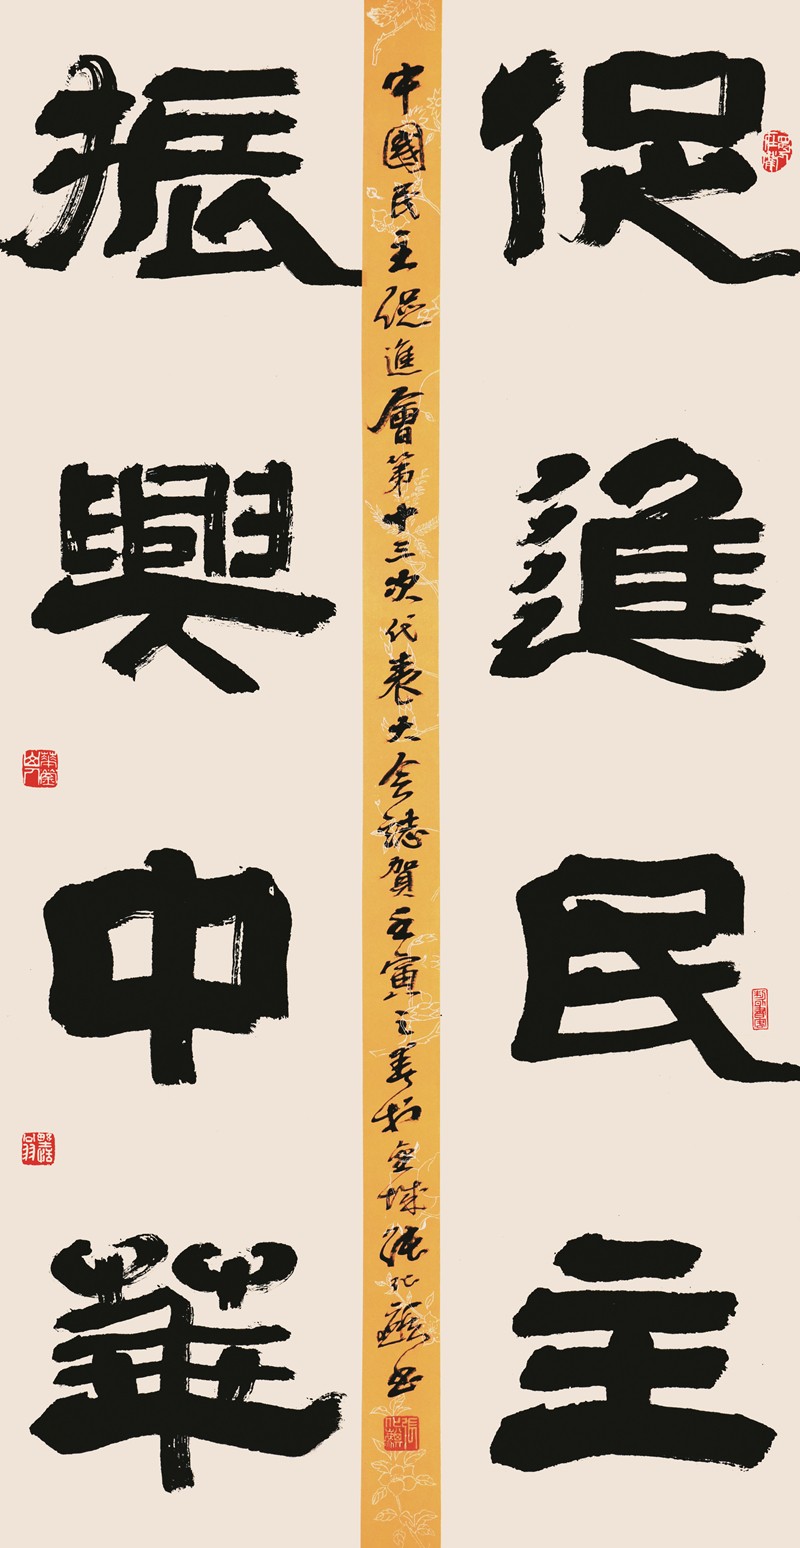 促進民主
振興中華
中國民主促進會第十三次代表大会誌賀壬寅之於城張书